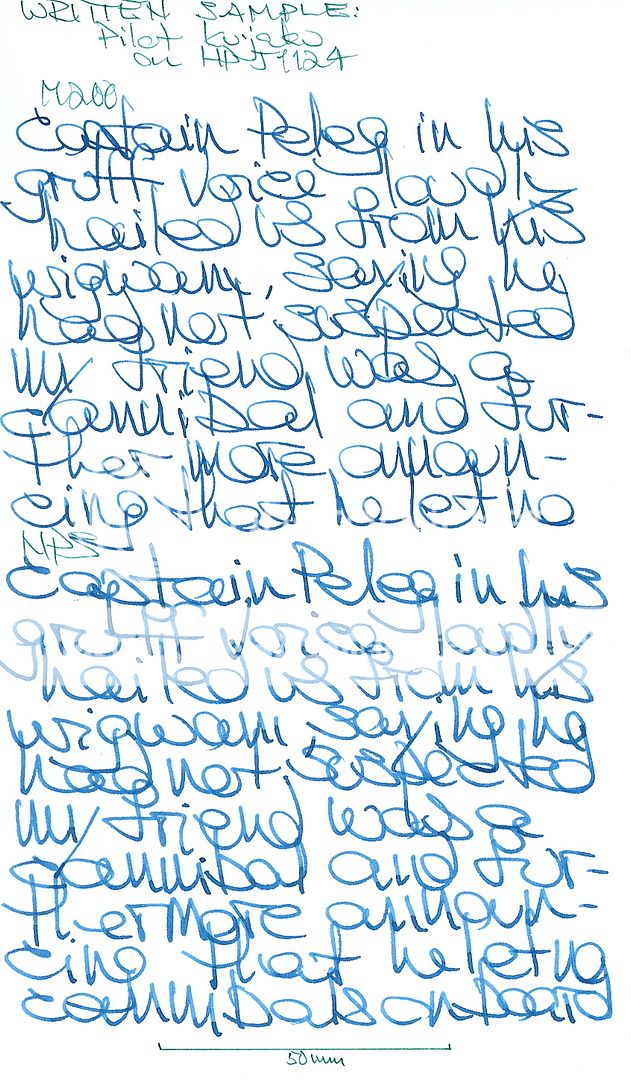 WRITTEN SAMPLE:
Pilot Kujaku
on HPJ1124
M200
Captain Peleg in his
gruff voice loudly
hailed us from his
wigwam, saying he
had not suspected
my friend was a
cannibal and fur-
thermore announ-
cing that he let no
NPS
Captain Peleg in his
gruff voice loudly
hailed us from his
wigwam, saying he
had not suspected
my friend was a
cannibal and fur-
thermore announ-
cing that he let no
cannibals on board
50mm